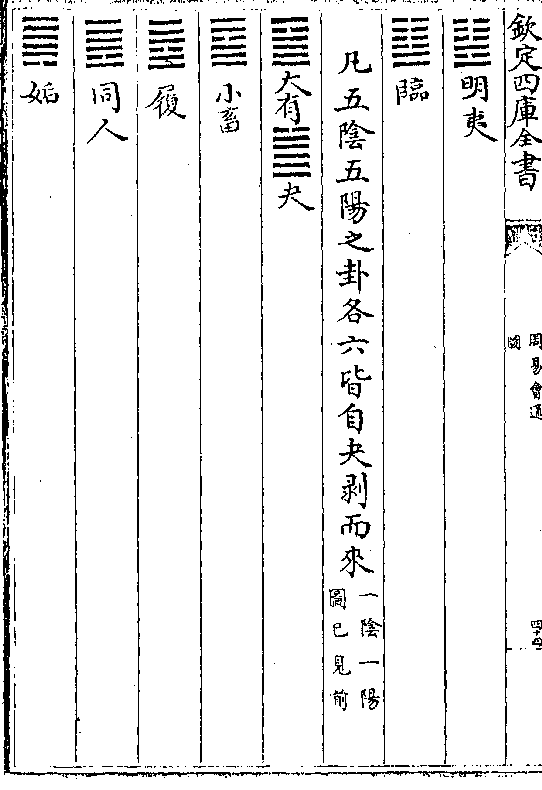 欽定四庫全書
周易會通
圖
四十四
䷣明夷
䷒臨
凡五陰五陽之卦各六皆自夬剥而來
一陰一陽
圖已見前
䷍大有䷪夬
䷈小畜
䷉履
䷌同人
䷫姤